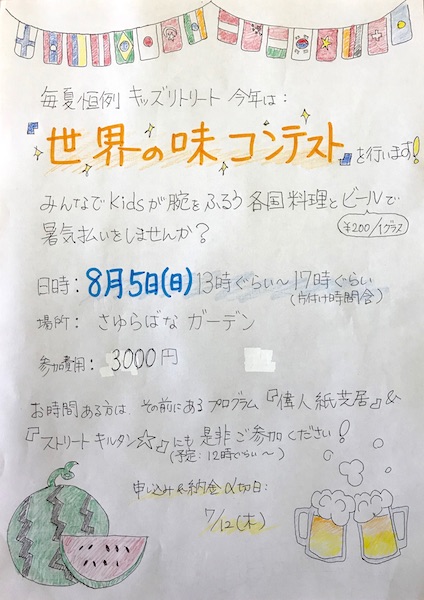 毎夏恒例 キッズリトリート 今年は：
世界の味コンテストを行います!
みんなでKidsが腕をふるう各国料理とビールで
¥200/1グラス
暑気払いをしませんか？
日時：8月5日(日)13時ぐらい〜17時ぐらい
(片付け時間含)
場所： さゆらばな ガーデン
参加費用： 3000円
お時間ある方は、その前にあるプログラム『偉人紙芝居』&
『ストリートキルタン☆』にも是非ご参加ください!
(予定：12時ぐらい〜)
申し込み&納金〆切日：
7/12(木)